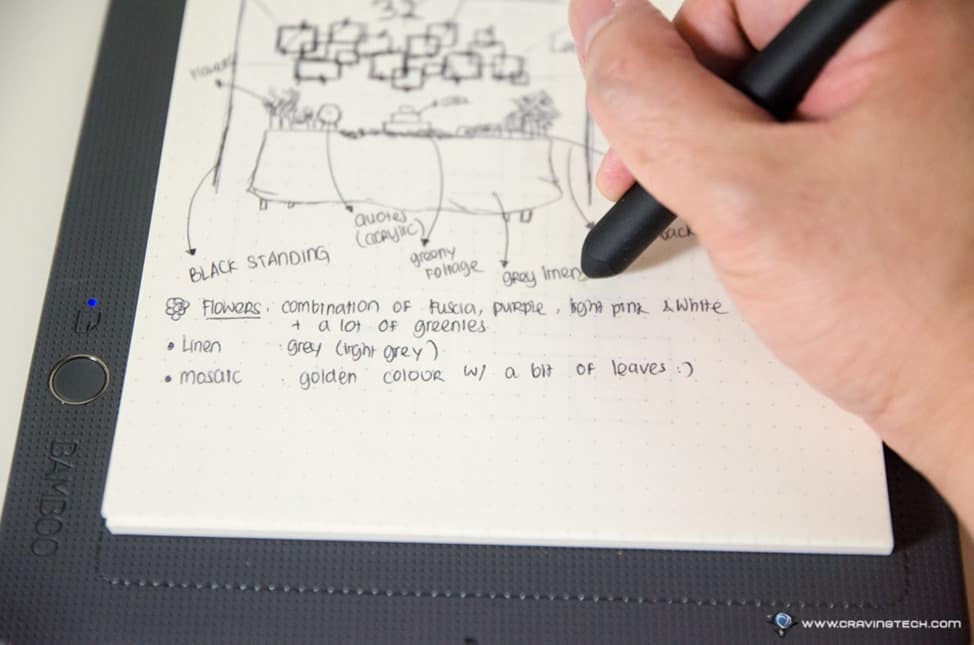 32
Flowers
quotes
(acrylic)
BLACK STANDING
greeny
Foliage
grey linen
FLOWERS : combination of Fuscia, purple, light pink & white
+ a lot of greenies
• Linen : grey (light grey)
• mosaic : golden colour w/ a bit of leaves :)
BAMBOO
WWW.CRAVINGTECH.COM